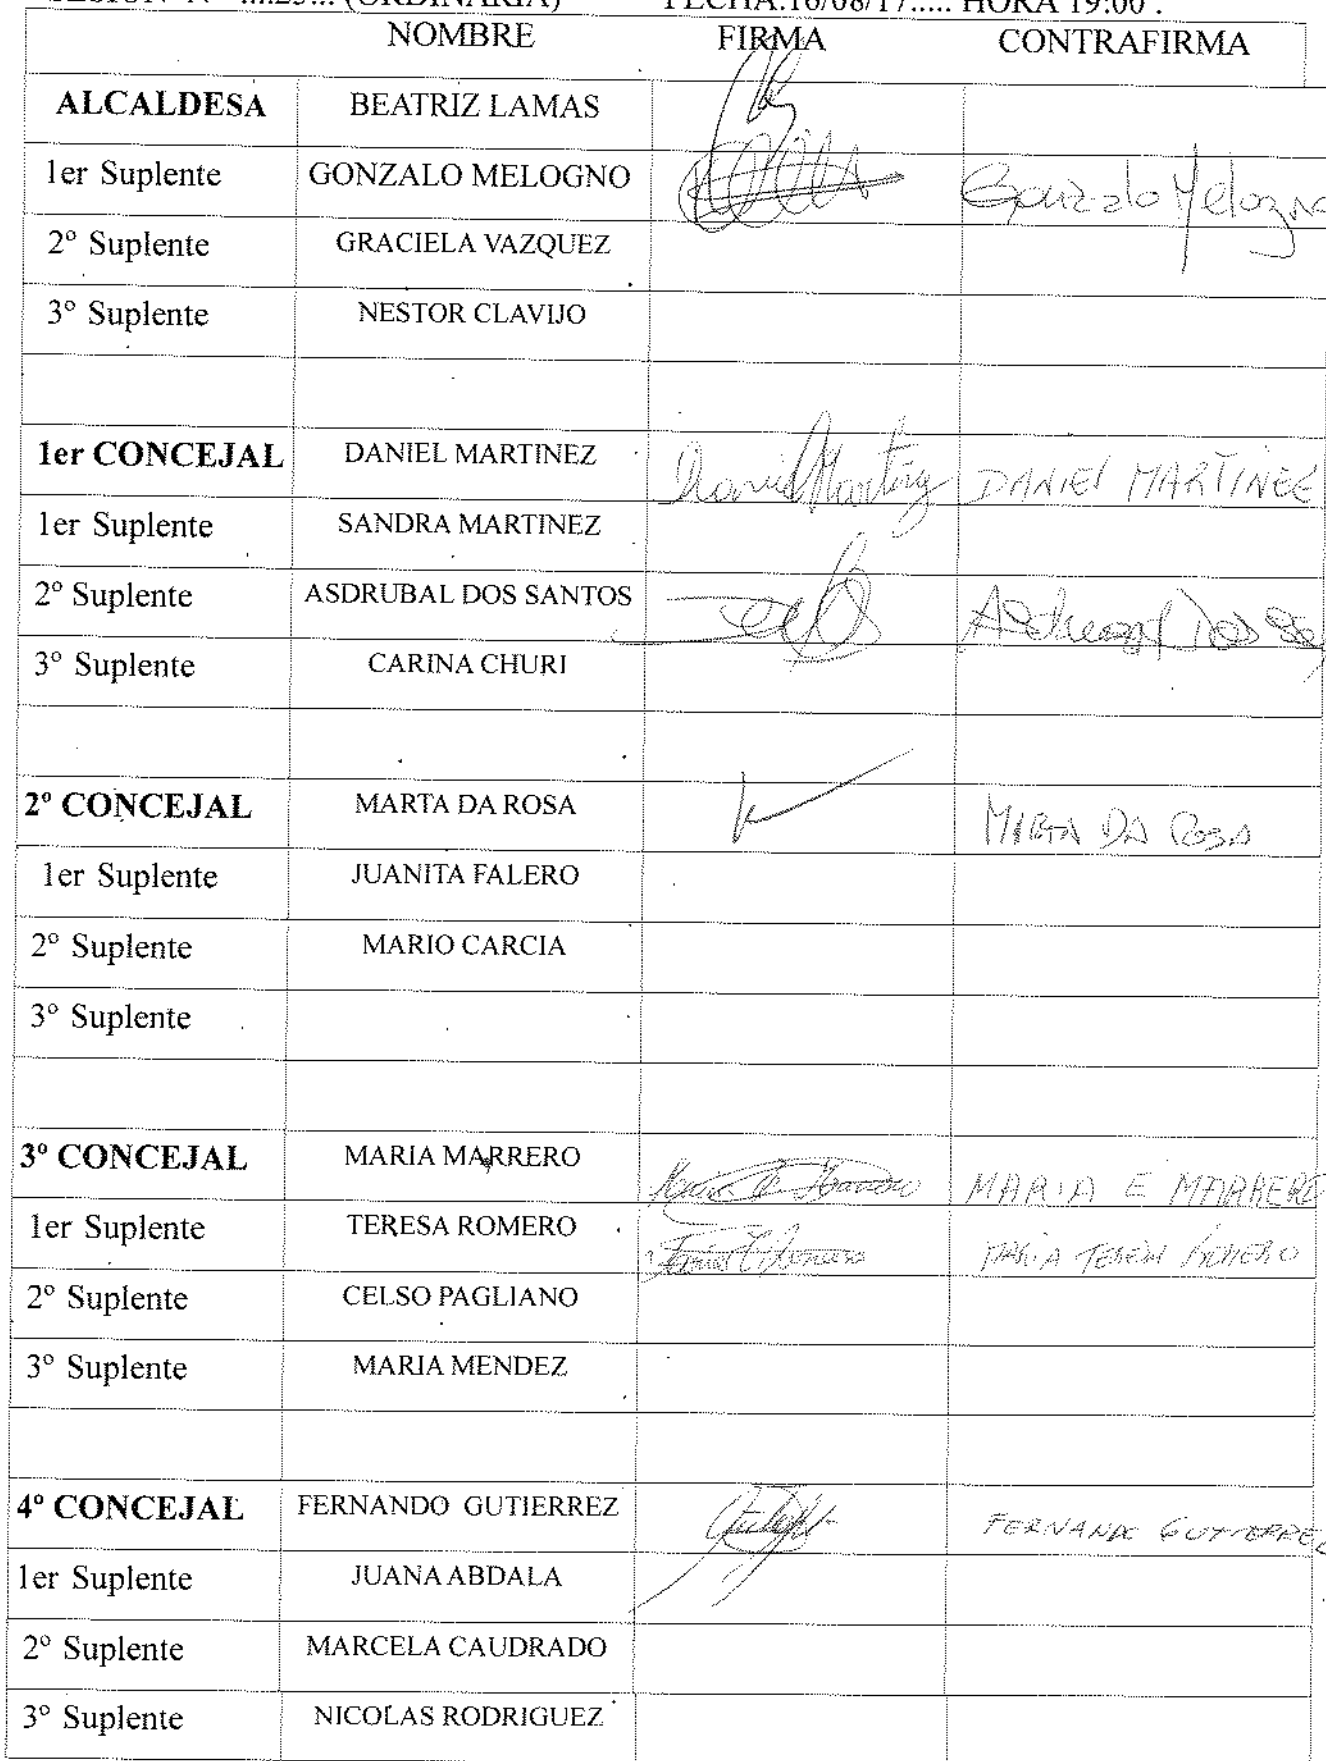 SESION N° ....25... (ORDINARIA) FECHA:16/08/17..... HORA 19:00 .
NOMBRE FIRMA CONTRAFIRMA
ALCALDESA BEATRIZ LAMAS
1er Suplente GONZALO MELOGNO Gonzalo Melogno
2º Suplente GRACIELA VAZQUEZ
3º Suplente NESTOR CLAVIJO
1er CONCEJAL DANIEL MARTINEZ Daniel Martinez DANIEL MARTINEZ
1er Suplente SANDRA MARTINEZ
2º Suplente ASDRUBAL DOS SANTOS
3º Suplente CARINA CHURI
2º CONCEJAL MARTA DA ROSA DA ROSA
1er Suplente JUANITA FALERO
2º Suplente MARIO CARCIA
3º Suplente
3º CONCEJAL MARIA MARRERO MARIA E MARRERO
1er Suplente TERESA ROMERO MARIA TERESA ROMERO
2º Suplente CELSO PAGLIANO
3º Suplente MARIA MENDEZ
4º CONCEJAL FERNANDO GUTIERREZ FERNANDO GUTIERREZ
1er Suplente JUANA ABDALA
2º Suplente MARCELA CAUDRADO
3º Suplente NICOLAS RODRIGUEZ